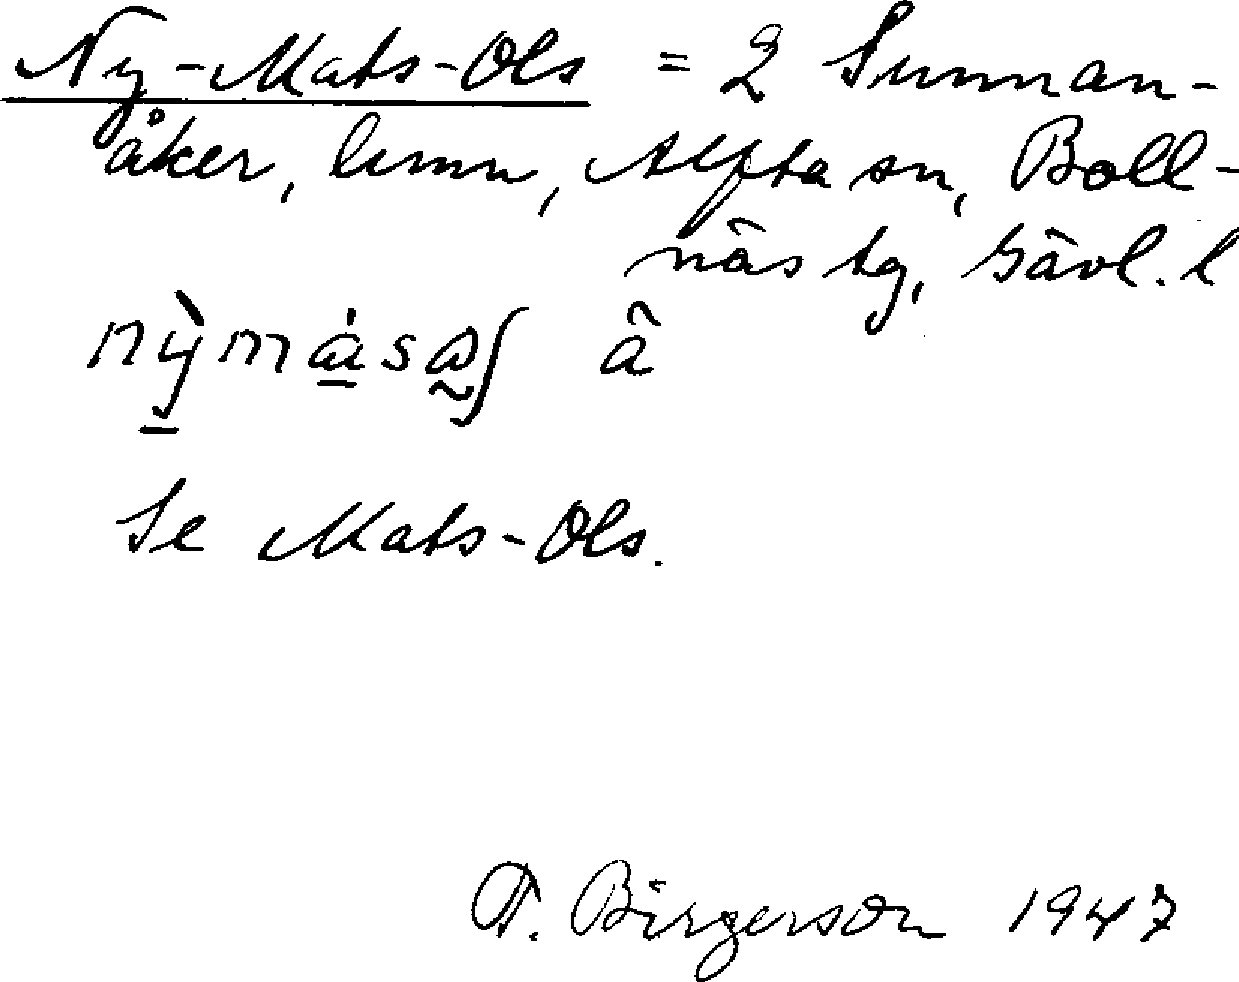 Ny-Mats-Ols = 2 Sunnan-
åker, lmn, Alfta sn, Boll-
näs tg, Gävl. l
Se Mats-Ols.
T. Birgerson 1947